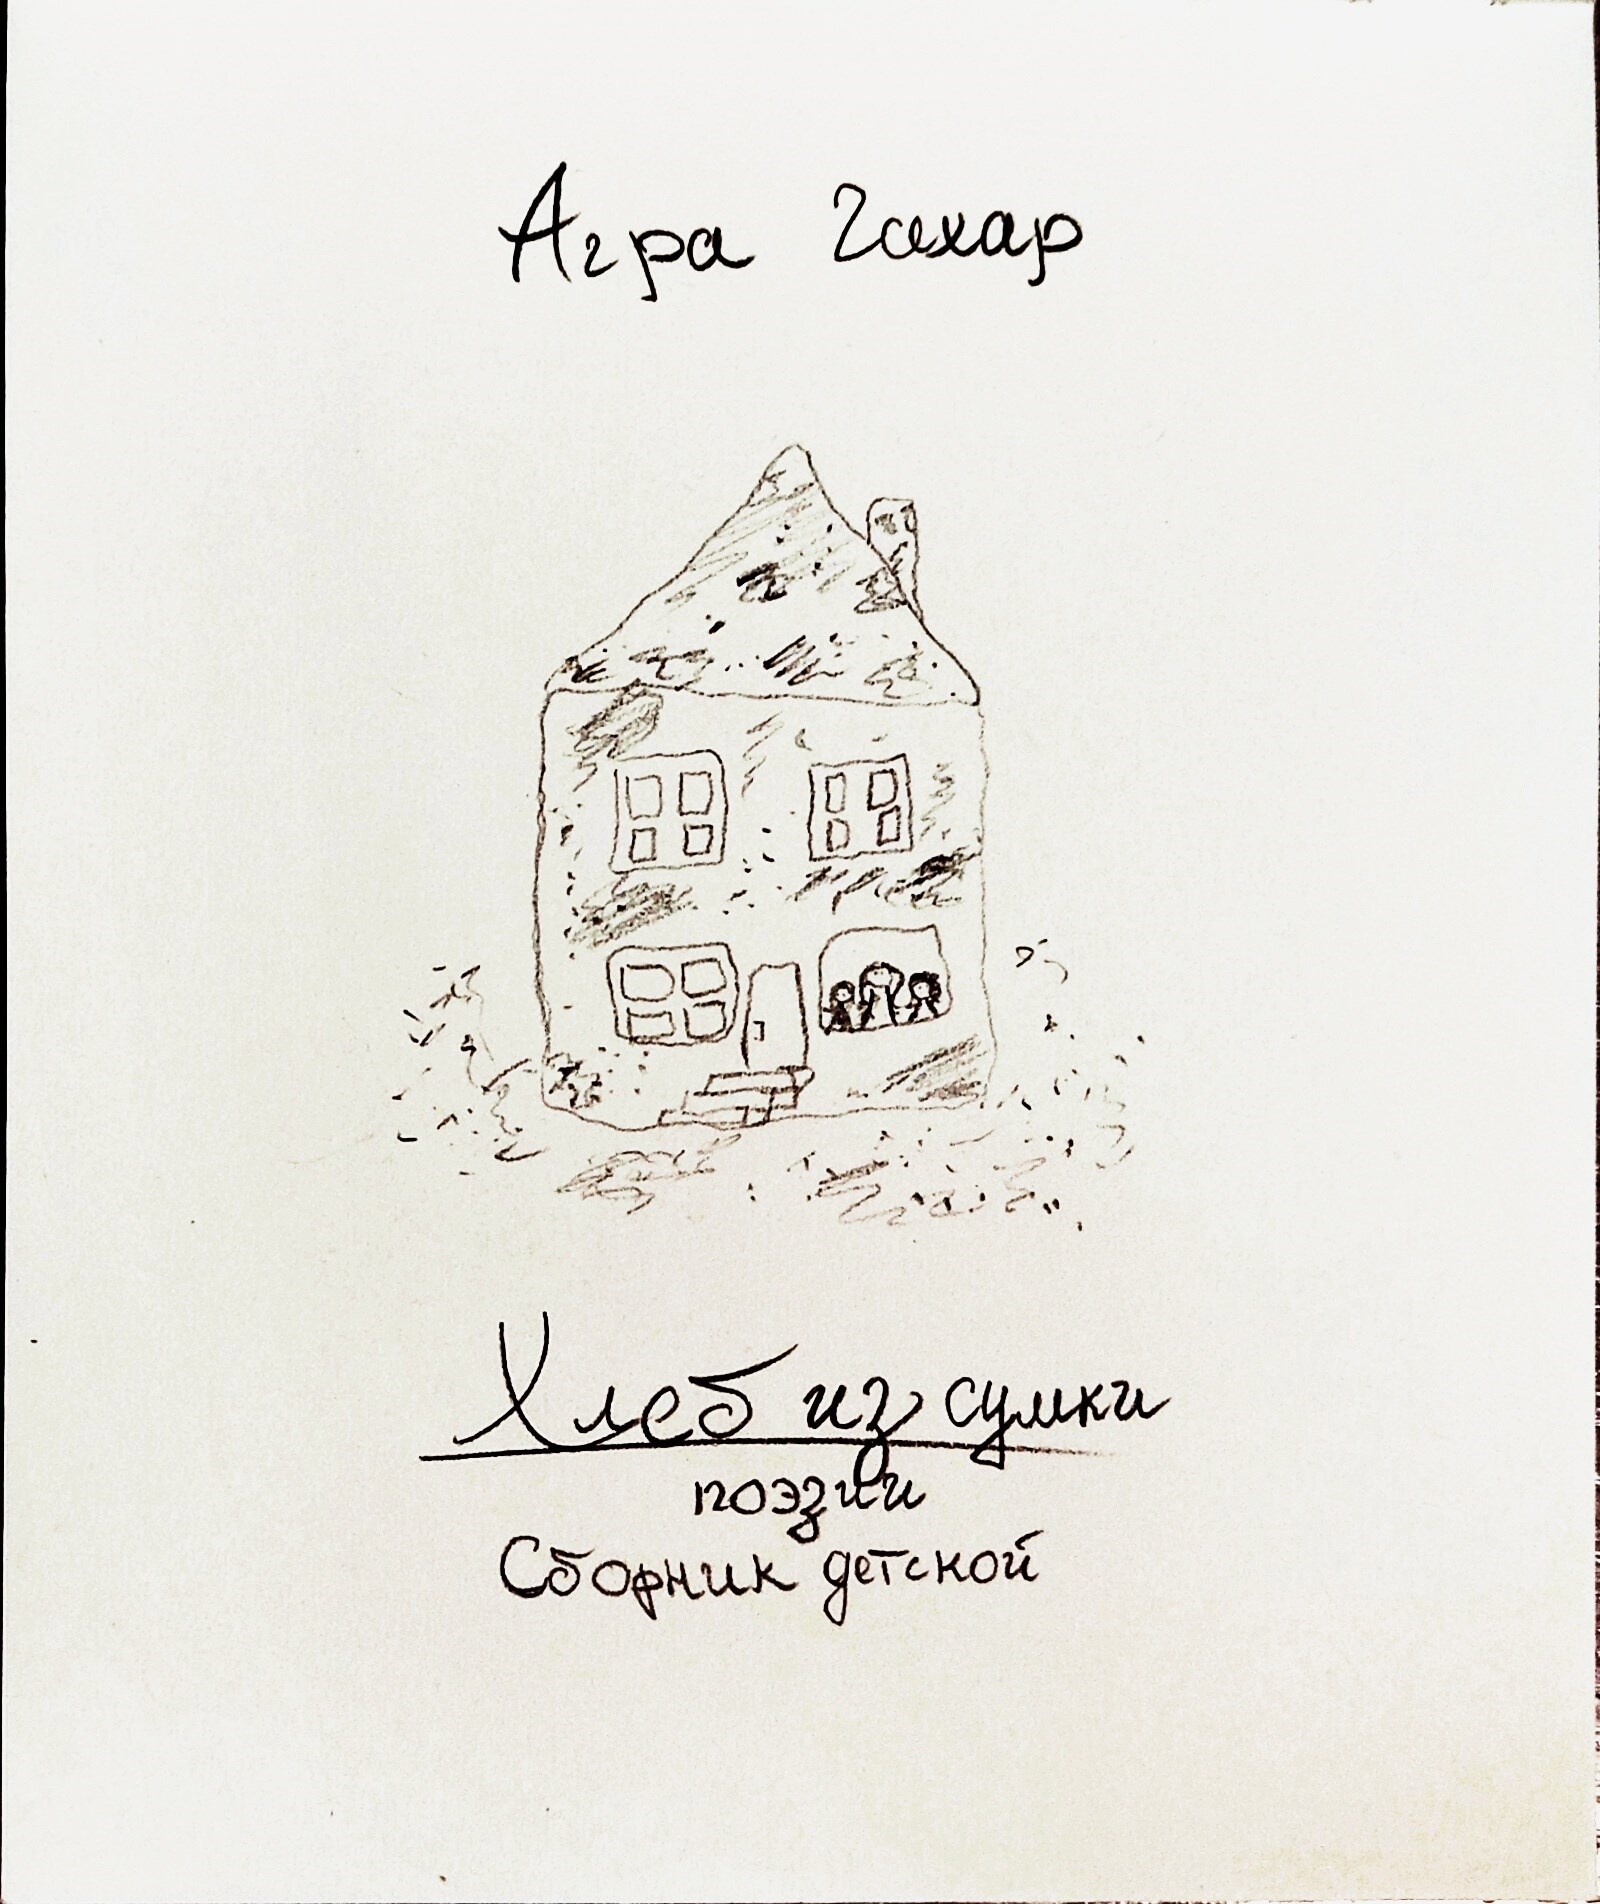 Агра Гахар
Хлеб из сумки
поэзии
Сборник детской